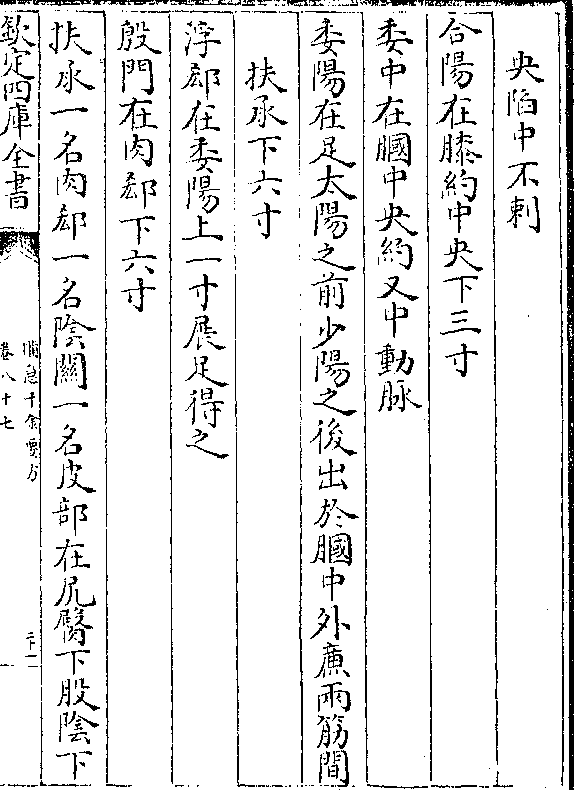 央陷中不刺
合陽在膝約中央下三寸
委中在膕中央約文中動脉
委陽在足太陽之前少陽之後出於膕中外亷兩筋間
扶承下六寸
浮郄在委陽上一寸展足得之
殷門在肉郄下六寸
扶承一名肉郄一名陰關一名皮部在尻臀下股陰下
欽定四庫全書
備急千金要方
卷八十七
二十一